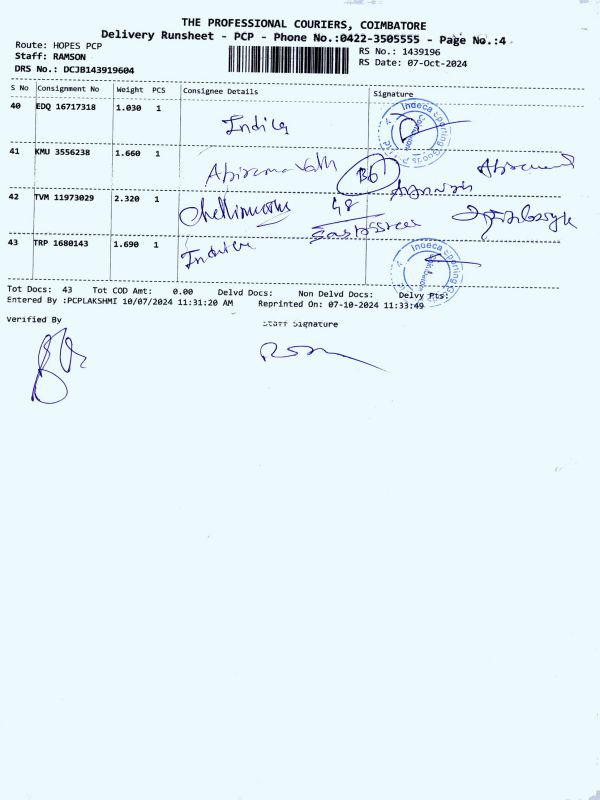 THE PROFESSIONAL COURIERS, COIMBATORE
Delivery Runsheet - PCP - Phone No.:0422-3505555 - Page No.:4
Route: HOPES PCP
Staff: RAMSON
DRS No.: DCJB143919604
RS No.: 1439196
RS Date: 07-Oct-2024
S No Consignment No Weight PCS Consignee Details Signature
40 EDQ 16717318 1.030 1
Indeca Sporting Goods
41 KMU 3556238 1.660 1
B6
42 TVM 11973029 2.320 1
48
43 TRP 1680143 1.690 1
Indeca Sporting
Tot Docs: 43 Tot COD Amt: 0.00 Delvd Docs: Non Delvd Docs: Delvy Pts:
Entered By :PCPLAKSHMI 10/07/2024 11:31:20 AM Reprinted On: 07-10-2024 11:33:49
Verified By
Staff Signature